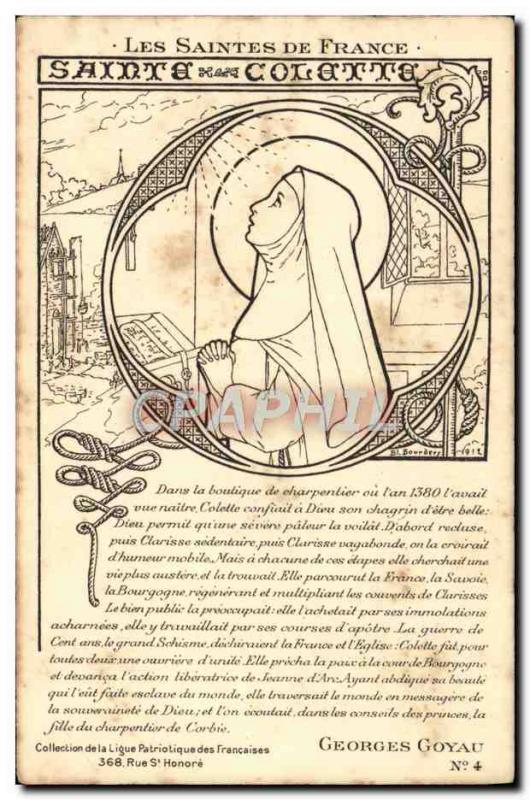 · LES SAINTES DE FRANCE ·
SAINTE COLETTE
CPAPHIL
Bl. Bourdery 1912
Dans la boutique de charpentier où l'an 1380 l'avait
vue naître, Colette confiait à Dieu son chagrin d'être belle:
Dieu permit qu'une sévère pâleur la voilât. D'abord recluse,
puis Clarisse sédentaire, puis Clarisse vagabonde, on la croirait
d'humeur mobile. Mais à chacune de ces étapes elle cherchait une
vie plus austère, et la trouvait. Elle parcourut la France, la Savoie,
la Bourgogne, régénérant et multipliant les couvents de Clarisses
Le bien public la préoccupait: elle l'achetait par ses immolations
acharnées, elle y travaillait par ses courses d'apôtre. La guerre de
Cent ans, le grand Schisme, déchiraient la France et l'Eglise: Colette fut, pour
toutes deux une ouvrière d'unité. Elle prêcha la paix à la cour de Bourgogne
et devança l'action libératrice de Jeanne d'Arc. Ayant abdiqué sa beauté
qui l'eût faite esclave du monde, elle traversait le monde en messagère de
la souveraineté de Dieu; et l'on écoutait, dans les conseils des princes, la
fille du charpentier de Corbie.
GEORGES GOYAU
Collection de la Ligue Patriotique des Françaises
368, Rue St Honoré
No 4